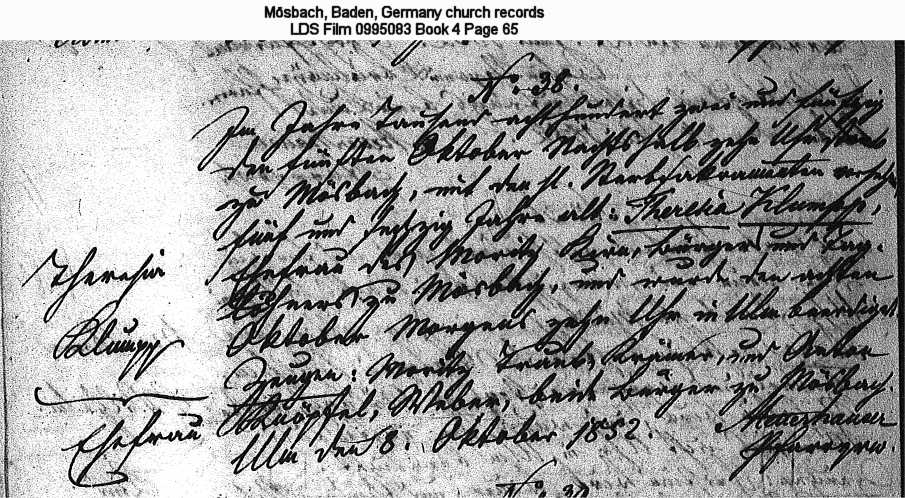 Mösbach, Baden, Germany church records
LDS Film 0995083 Book 4 Page 65
No. 38.
Im Jahre Tausend achthundert zwei und fünfzig
den fünften Oktober Nachts halb zehn Uhr starb
zu Mösbach, mit den hl. Sterbsakramenten versehen
fünf und sechzig Jahre alt: Theresia Klumpp,
Ehefrau des Moritz Kern, Bürger und Tag-
löhners zu Mösbach, und wurde den achten
Oktober Morgens zehn Uhr in Ulm beerdiget.
Zeugen: Moritz Traub, Krämer, und Anton
Knöpfel, Weber, beide Bürger zu Mösbach.
Ulm den 8. Oktober 1852.
Pfarrverw.
Theresia
Klumpp
Ehefrau
No. 39